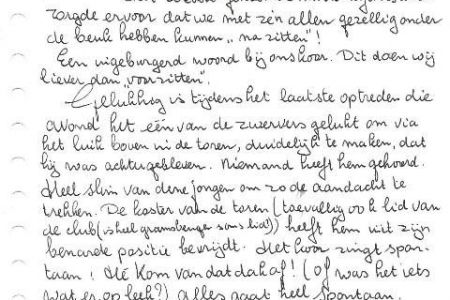 zorgde ervoor dat we met z'n allen gezellig onder
de beuk hebben kunnen "na zitten"!
Een uigeburgerd woord bij ons koor. Dit doen wij
liever dan "voorzitten".
Gelukkig is tijdens het laatste optreden die
avond het één van de zwervers gelukt om via
het luik boven in de toren, duidelijk te maken, dat
hij was achtergebleven. Niemand heeft hem gehoord.
Heel slim van deze jongen om zo de aandacht te
trekken. De koster van de toren (toevallig ook lid van
de club (is heel gramsbergen soms lid?)) heeft hem uit zijn
benarde positie bevrijdt. Het koor zingt spon-
taan! Hé Kom van dat dak af! (of was het iets
wat er op leek?) Alles gaat heel spontaan.